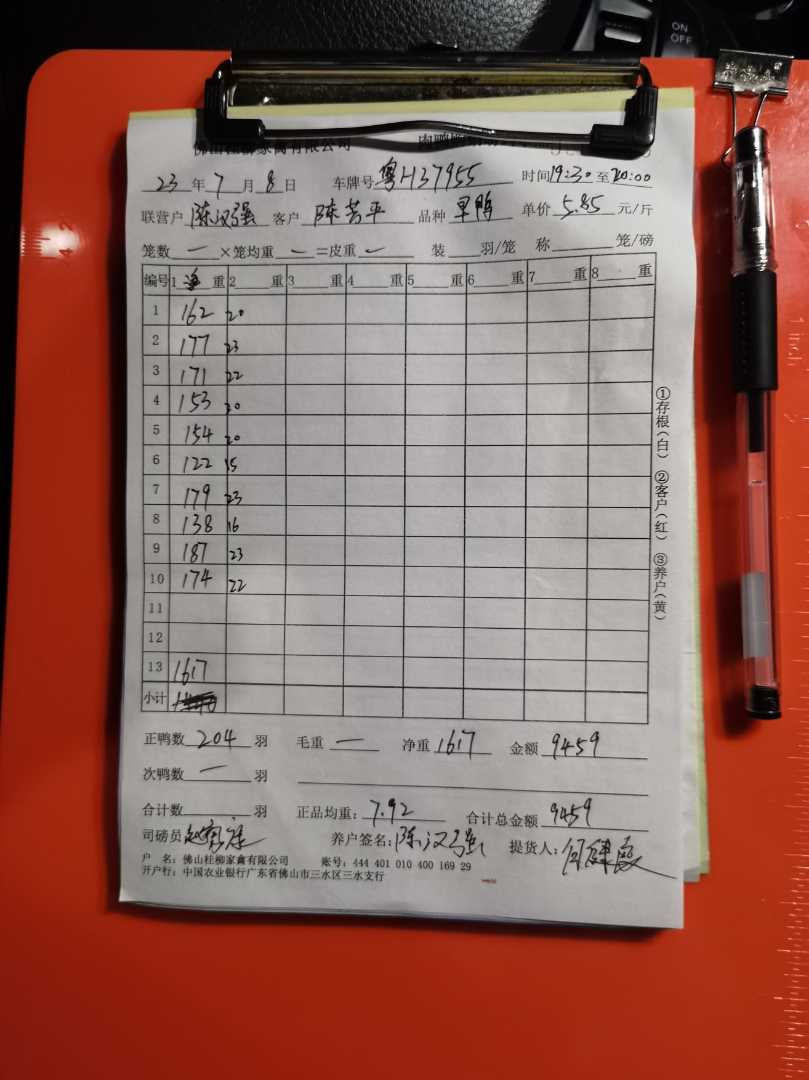 佛山桂柳家禽有限公司
23 年 7 月 8 日 车牌号 粤H37955 时间 19:30 至 20:00
联营户 陈汉强 客户 陈芳平 品种 旱鸭 单价 5.85 元/斤
笼数 一 ×笼均重 一 =皮重 一 装 羽/笼 称 笼/磅
编号 1 净 重 2 重 3 重 4 重 5 重 6 重 7 重 8 重
1 162 20
2 177 23
3 171 22
4 153 20
5 154 20
6 122 15
7 179 23
8 138 16
9 187 23
10 174 22
11
12
13 1617
小计
正鸭数 204 羽 毛重 一 净重 1617 金额 9459
次鸭数 一 羽
合计数 羽 正品均重: 7.92 合计总金额 9459
司磅员 养户签名: 陈汉强 提货人:
户 名: 佛山桂柳家禽有限公司 账号: 444 401 010 400 169 29
开户行: 中国农业银行广东省佛山市三水区三水支行
①存根(白) ②客户(红) ③养户(黄)
ON
OFF